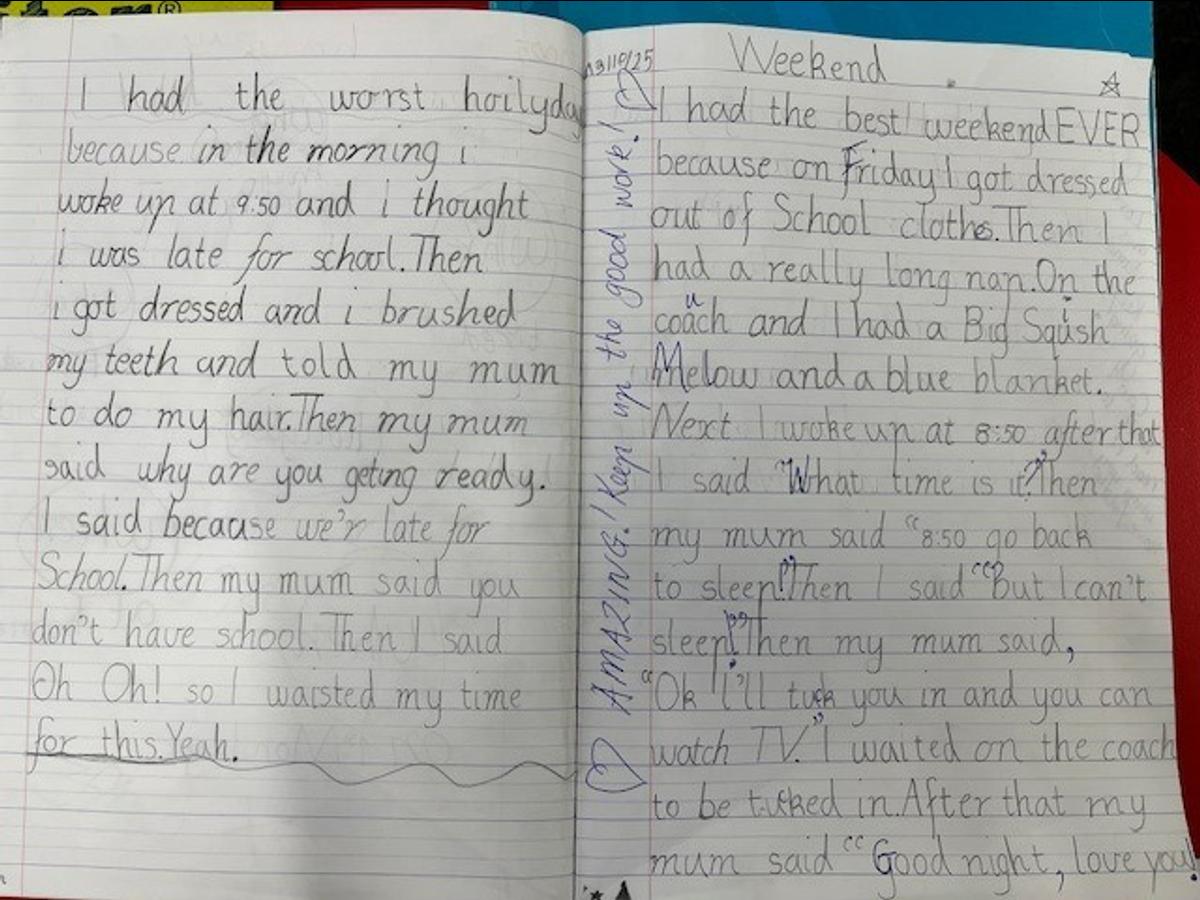 I had the worst hoilyday
because in the morning i
woke up at 9.50 and i thought
i was late for school. Then
i got dressed and i brushed
my teeth and told my mum
to do my hair. Then my mum
said why are you geting ready.
I said becauase we'r late for
School. Then my mum said you
don't have school. Then I said
Oh Oh! so I waisted my time
for this. Yeah.
AMAZING! Keep up the good work!
Weekend
I had the best weekend EVER
because on Friday I got dressed
out of School cloths. Then I
had a really long nap. On the
coach and I had a Big Sqush
Melow and a blue blanket.
Next I woke up at 8:50 after that
I said "What time is it?" Then
my mum said "8:50 go back
to sleep!" Then I said "But I can't
sleep!" Then my mum said,
"Ok I'll tuck you in and you can
watch TV." I waited on the coach
to be tuked in. After that my
mum said "Good night, love you!